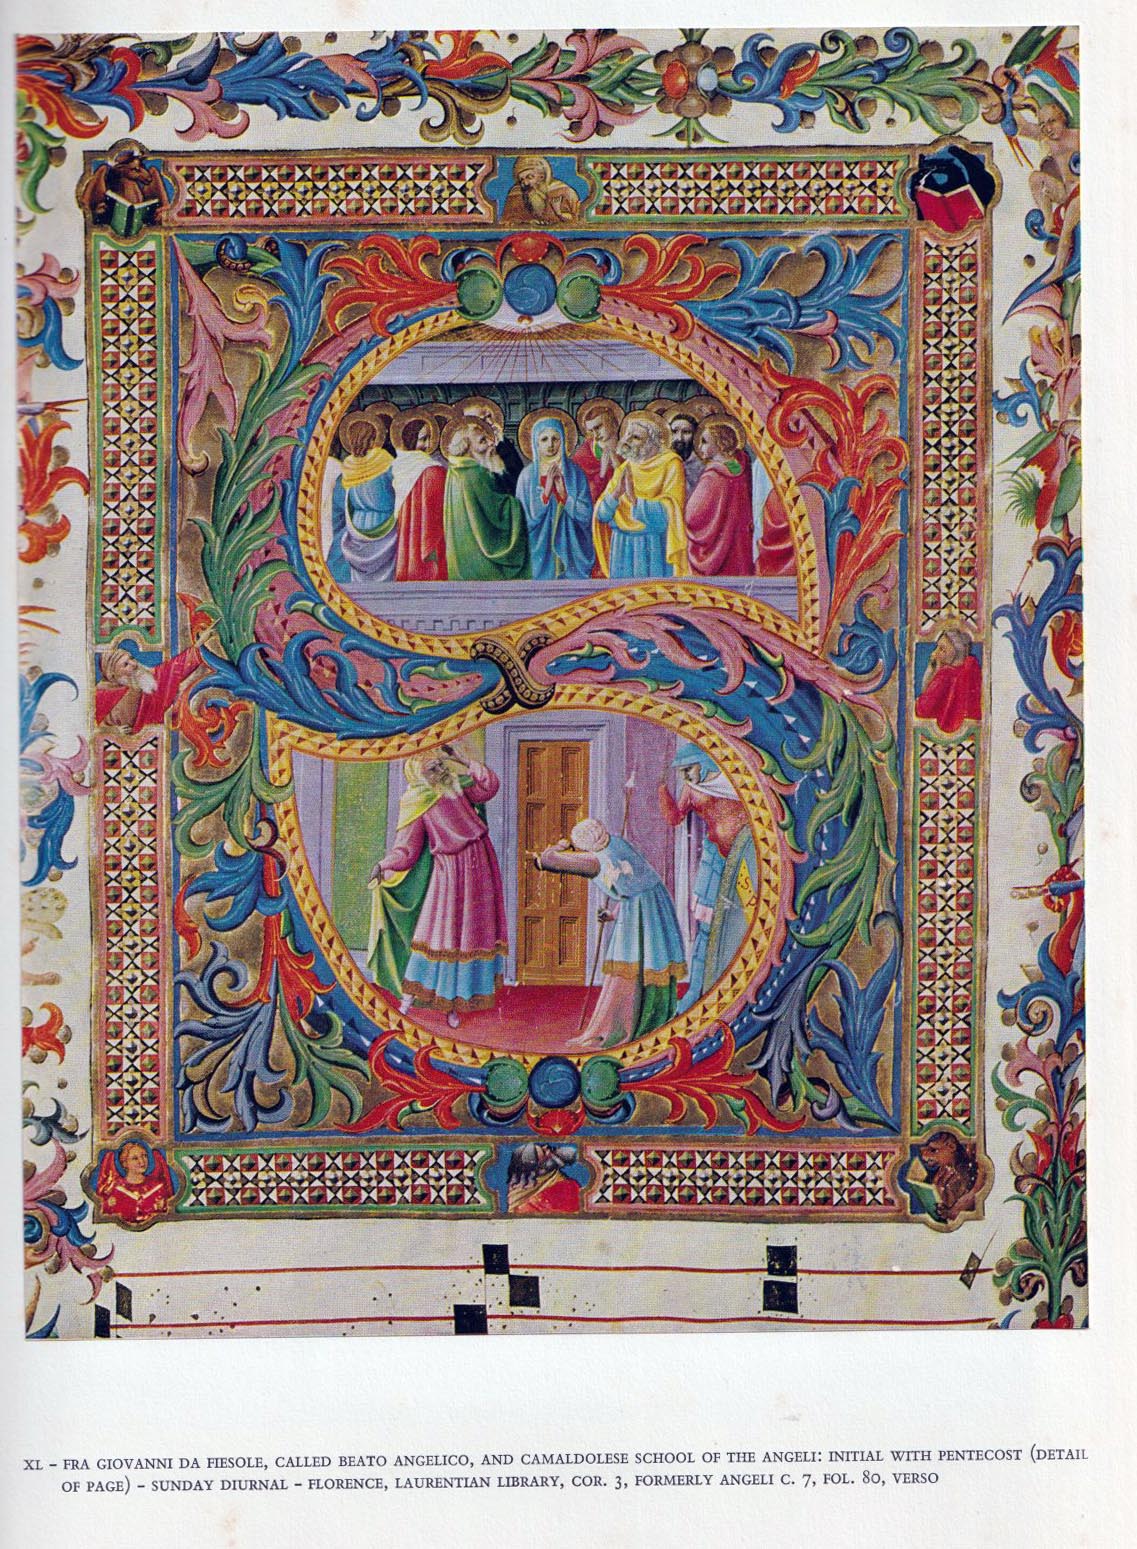 XL – FRA GIOVANNI DA FIESOLE, CALLED BEATO ANGELICO, AND CAMALDOLESE SCHOOL OF THE ANGELI: INITIAL WITH PENTECOST (DETAIL
OF PAGE) – SUNDAY DIURNAL – FLORENCE, LAURENTIAN LIBRARY, COR. 3, FORMERLY ANGELI C. 7, FOL. 80, VERSO